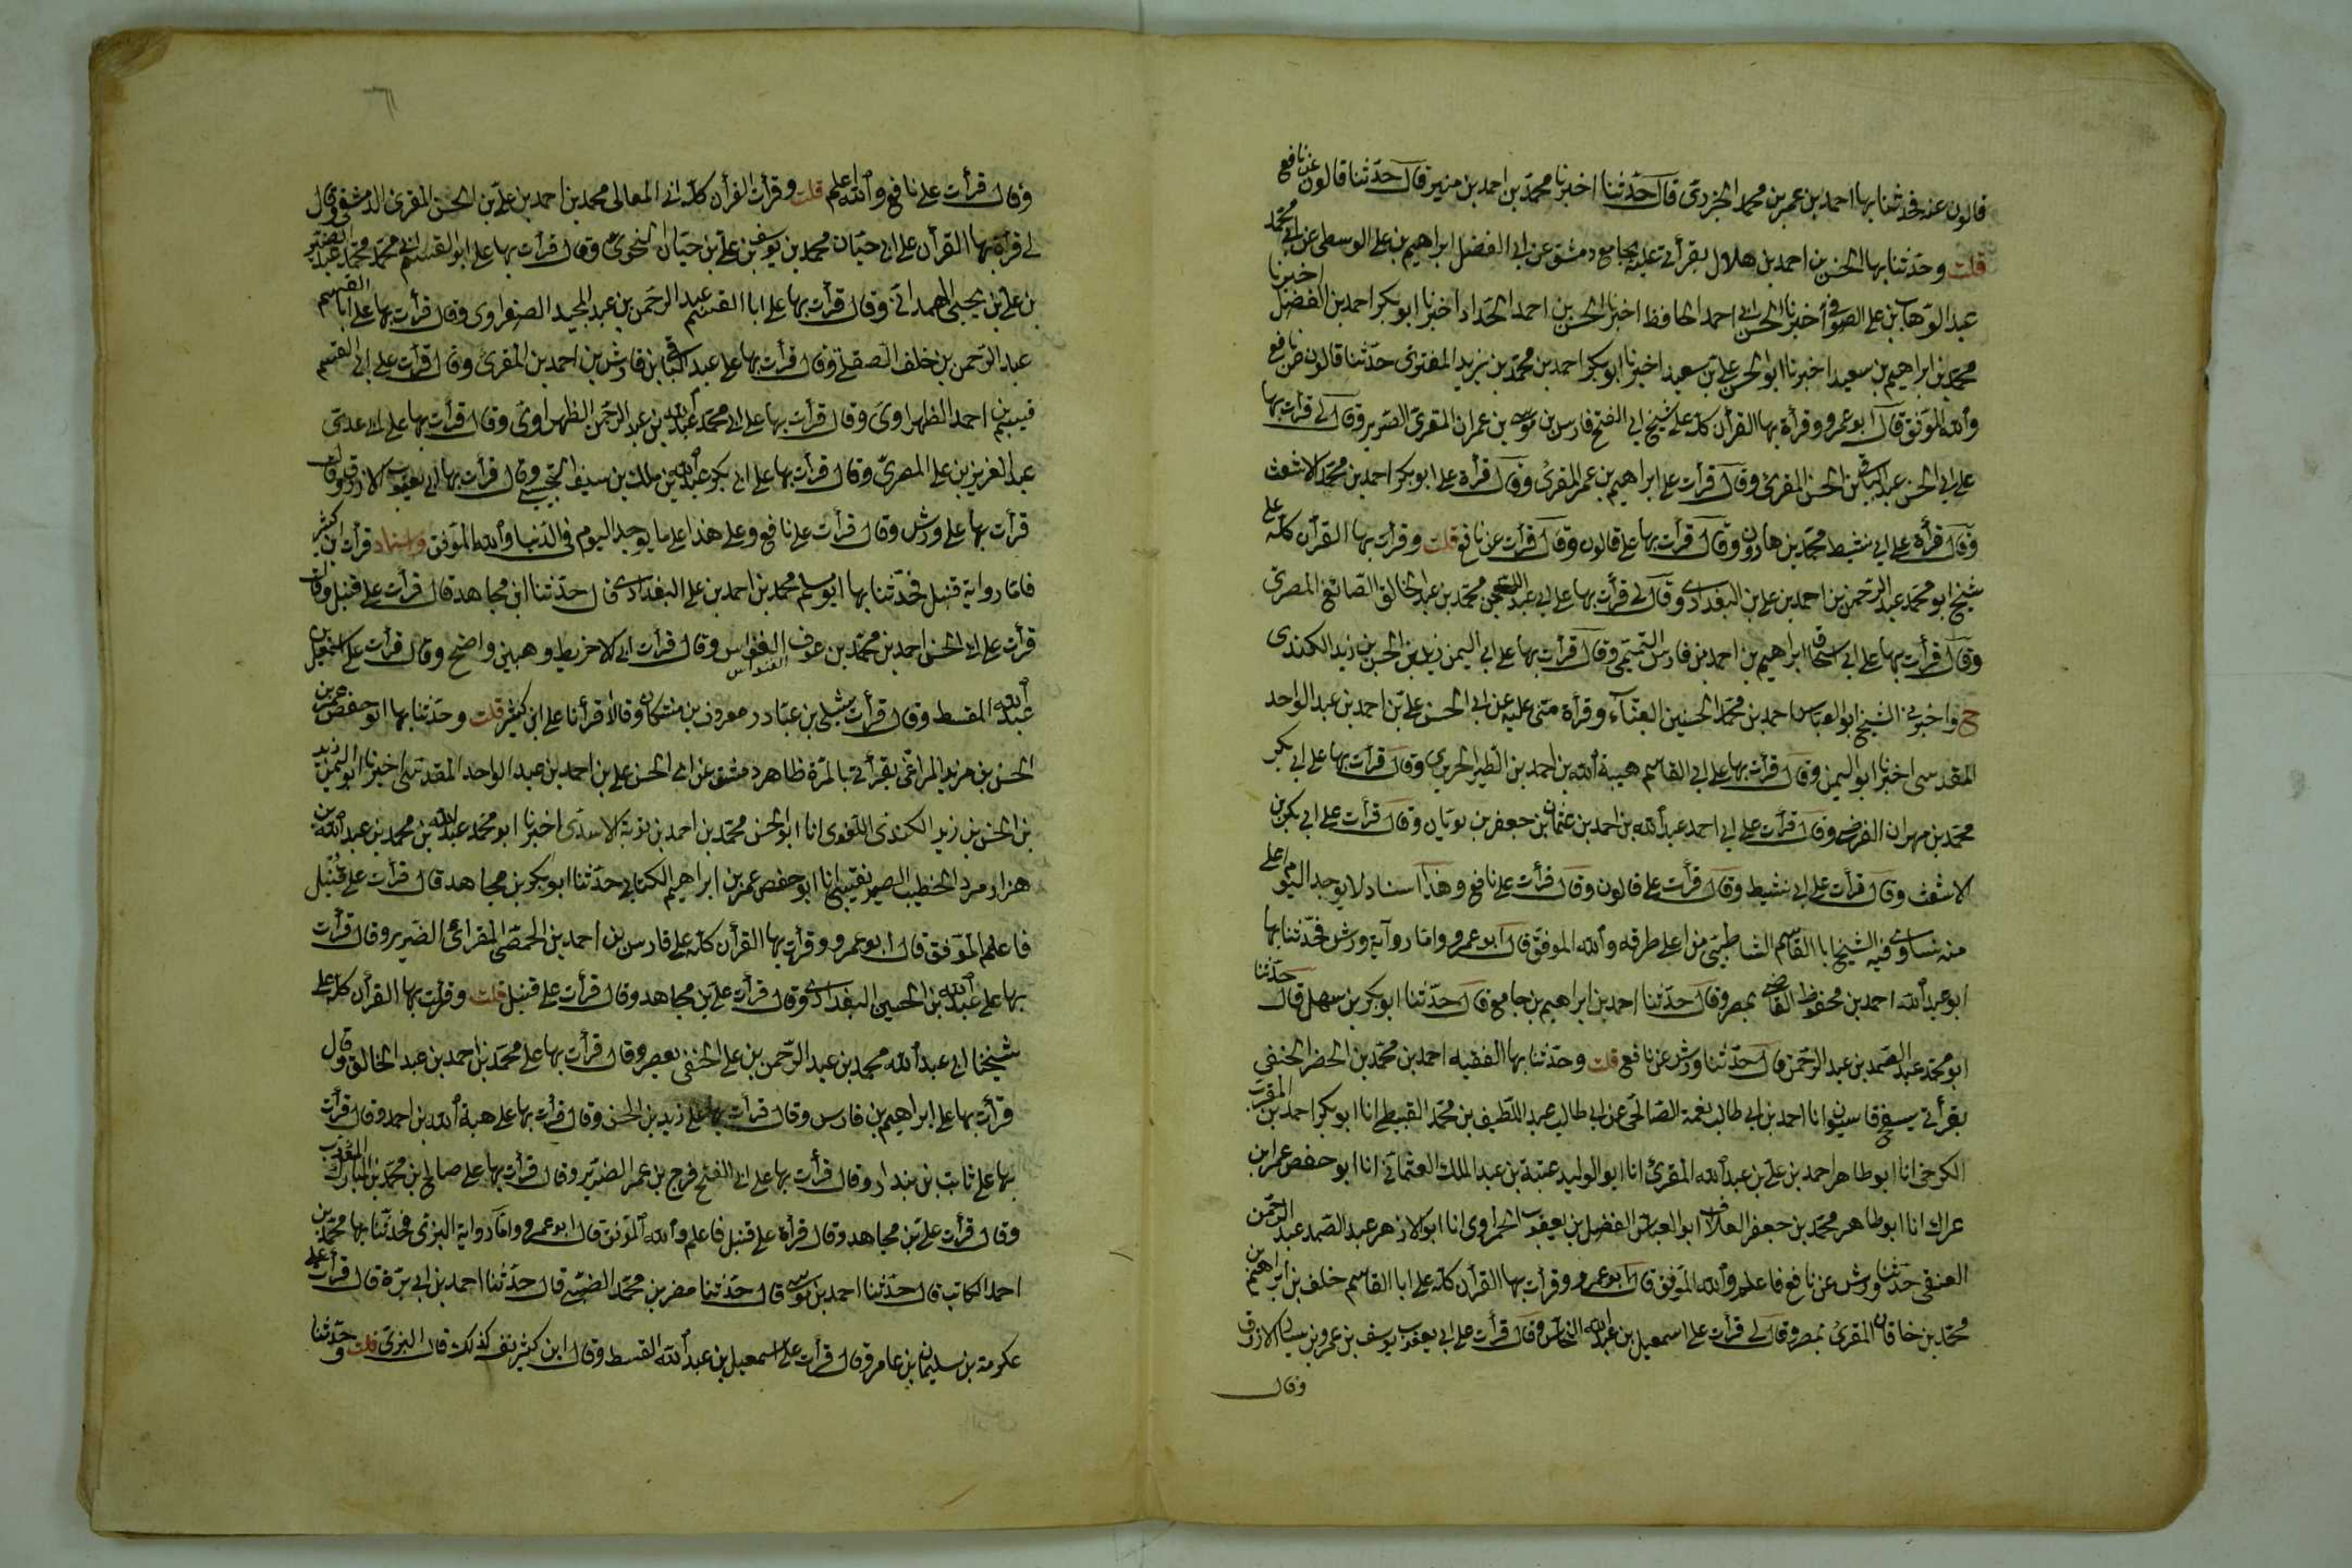 قالون عنه فحدثنا بها احمد بن عمر بن محمد الجزرى قال حدثنا اخبرنا محمد بن احمد بن منير قال حدثنا قالون عن نافع
قلت وحدثنا بها الحسن بن احمد بن هلال بقرأتى عليه بجامع دمشق عن ابى الفضل ابراهيم بن على الوسطى عن ابى محمد
عبد الوهاب بن على الصوفى أخبرنا الحسن ابى احمد الحافظ اخبرنا الحسن بن احمد الحداد اخبرنا ابو بكر احمد بن الفضل اخبرنا
محمد بن ابراهيم بن سعيد اخبرنا ابو الحسن على بن سعيد اخبرنا ابو بكر احمد بن محمد بن يزيد المفترى حدثنا قالون عن نافع
والله الموفق قال ابو عمرو وقرأة بها القرأن كله على شيخ ابى الفتح فارس بن موسى بن عمران المقرى الضرير وقال لى قرأت بها
على ابى الحسن عبد الباقى بن الحسن المقرئ وقال قرأت على ابراهيم بن عمر المقرئ وقال قرأة على ابو بكر احمد بن محمد الاشعث
وقال قرأة على ابى نشيط محمد بن هارون وقال قرأت بها على قالون وقال قرأت عن نافع قلت وقرأت بها القرأن كله على
شيخ ابو محمد عبد الرحمن بن احمد بن على بن البغدادى وقال لى قرأت بها على ابى عبد الله محمد بن عبد الخالق الصائغ المصرى
وقال قرأت بها على ابى اسحاق ابراهيم بن احمد بن فارس التميمى وقال قرأت بها على ابى اليمن زيد بن الحسن بن زيد الكندى
ح واخبرنى الشيخ ابو العباس احمد بن محمد الحسين البناء وقرأة منى عليه عن ابى الحسن على بن احمد بن عبد الواحد
المقدسى اخبرنا ابو اليمن وقال قرأت بها على ابى القاسم هيبة الله بن احمد بن الطبر الحريرى وقال قرأت بها على ابى بكر
محمد بن مهران الفرضى وقال قرأت على ابى احمد عبد الله بن احمد بن عثمان بن جعفر بن بويان وقال قرأت على ابى بكر بن
الاشعث وقال قرأت على ابى نشيط وقال قرأت على قالون وقال قرأت على نافع وهذا اسناد لا يوجد اليوم اعلى
منه نساوى فيه الشيخ ابا القاسم الشاطبى من اعلى طرقه والله الموفق قال ابو عمرو واما رواية ورش فحدثنا بها
ابو عبد الله احمد بن محفوظ القاضى بمصر وقال حدثنا احمد بن ابراهيم بن جامع قال حدثنا ابو بكر بن سهل قال حدثنا
ابو محمد عبد الصمد بن عبد الرحمن قال حدثنا ورش عن نافع قلت وحدثنا بها الفقيه احمد بن محمد بن الخضر الحنفى
بقرأتى بسفح قاسيون انا احمد بن ابى طالب نعمة الصالحى عن ابى طالب عبد اللطيف بن محمد القبيطى انا ابو بكر احمد بن المقرب
الكرخى انا ابو طاهر احمد بن على بن عبد الله المقرئ انا ابو الوليد عتبة بن عبد الملك العثمانى انا ابو حفص عمر بن
عراك انا ابو طاهر محمد بن جعفر العلاف ابو العباس الفضل بن يعقوب الحمراوى انا ابو الازهر عبد الصمد عبد الرحمن
العتقى حدثنا ورش عن نافع فاعلم والله الموفق قال ابو عمرو وقرأت بها القرأن كله على ابا القاسم خلف بن ابراهيم بن
محمد بن خاقان المقرئ بمصر وقال لى قرأت على اسمعيل بن عبد الله النحاس وقال قرأت على ابى يعقوب يوسف بن عمرو بن يسار الازرق
وقال
وقال قرأت على نافع والله اعلم قلت وقرأت القرأن كله ابى المعالى محمد بن احمد بن على بن الحسن المقرئ الدمشقى وقال
لى قرأت بها القرأن على ابى حيان محمد بن يوسف بن على بن حيان النحوى وقال قرأت بها على ابو القسم ابى محمد محمد عبد النصير
بن على بن يحيى الهمدانى وقال قرأت بها على ابا القسم عبد الرحمن بن عبد المجيد الصفراوى وقال قرأت بها على ابا القسم
عبد الرحمن بن خلف الصقلى وقال قرأت بها على عبد الباقى بن فارس بن احمد بن المقرئ وقال قرأت على ابى القسم
قسيم بن احمد الظهراوى وقال قرأت بها على ابى محمد عبد الله بن عبد الرحمن الظهراوى وقال قرأت بها على ابى عدى
عبد العزيز بن على المصرى وقال قرأت بها على ابى بكر عبد الله بن مالك بن سيف التجيبى وقال قرأت بها ابى يعقوب الازرق وقال
قرأت بها على ورش وقال قرأت على نافع وعلى هذا على ما يوجد اليوم فى الدنيا والله الموفق واسناد قرأت بن كثير
فاما رواية قنبل فحدثنا بها ابو مسلم محمد بن احمد بن على البغدادى قال حدثنا ابن مجاهد قال قرأت على قنبل وقال
قرأت على ابى الحسن احمد بن محمد بن عوف القواس وقال قرأت ابى الاخريط وهب بن واضح وقال قرأت على اسمعيل بن
القواس
عبد الله القسط وقال قرأت شبل بن عباد ومعروف بن مشكان وقالا قرأنا على ابن كثير قلت وحدثنا بها ابو حفص عمر بن
الحسن بن مزيد المراغى بقرأتى بالمزة ظاهر دمشق عن ابى الحسن على بن احمد بن عبد الواحد المقدسى اخبرنا ابو اليمن زيد
بن الحسن بن زيد الكندى اللغوى انا ابو الحسن محمد بن احمد بن توبة الاسدى اخبرنا ابو محمد عبد الله بن محمد بن عبد الله بن
هزارمرد الخطيب الصريفينى انا ابو حفص عمر بن ابراهيم الكتانى حدثنا ابو بكر بن مجاهد قال قرأت على قنبل
فاعلم الموفق قال ابو عمرو وقرأت بها القرأن كله على فارس بن احمد بن الحمصى المقرائى الضرير وقال قرأت
بها على عبد الله بن الحسين البغدادى وقال قرأت على بن مجاهد وقال قرأت على قنبل قلت وقرأت بها القرأن كله على
شيخنا ابى عبد الله محمد بن عبد الرحمن بن على الحنفى بمصر وقال قرأت بها على محمد بن احمد بن عبد الخالق وقال
قرأت بها على ابراهيم بن فارس وقال قرأت بها على زيد بن الحسن وقال قرأت بها على هبة الله بن احمد وقال قرأت
بها على ثابت بن بندار وقال قرأت بها على ابى الفتح فرج بن عمر الضرير وقال قرأت بها على صالح بن محمد بن المبارك المؤدب
وقال قرأت على بن مجاهد وقال قرأة على قنبل فاعلم والله الموفق قال ابو عمرو واما رواية البزى فحدثنا بها محمد بن
احمد الكاتب قال حدثنا احمد بن موسى قال حدثنا مضر بن محمد الضبى قال حدثنا احمد بن ابى بزة قال قرأت على
عكرمة بن سليمان بن عامر وقال قرأت على اسمعيل بن عبد الله القسط وقال ابن كثير نفسه كذلك قال البزى قلت وحدثنا